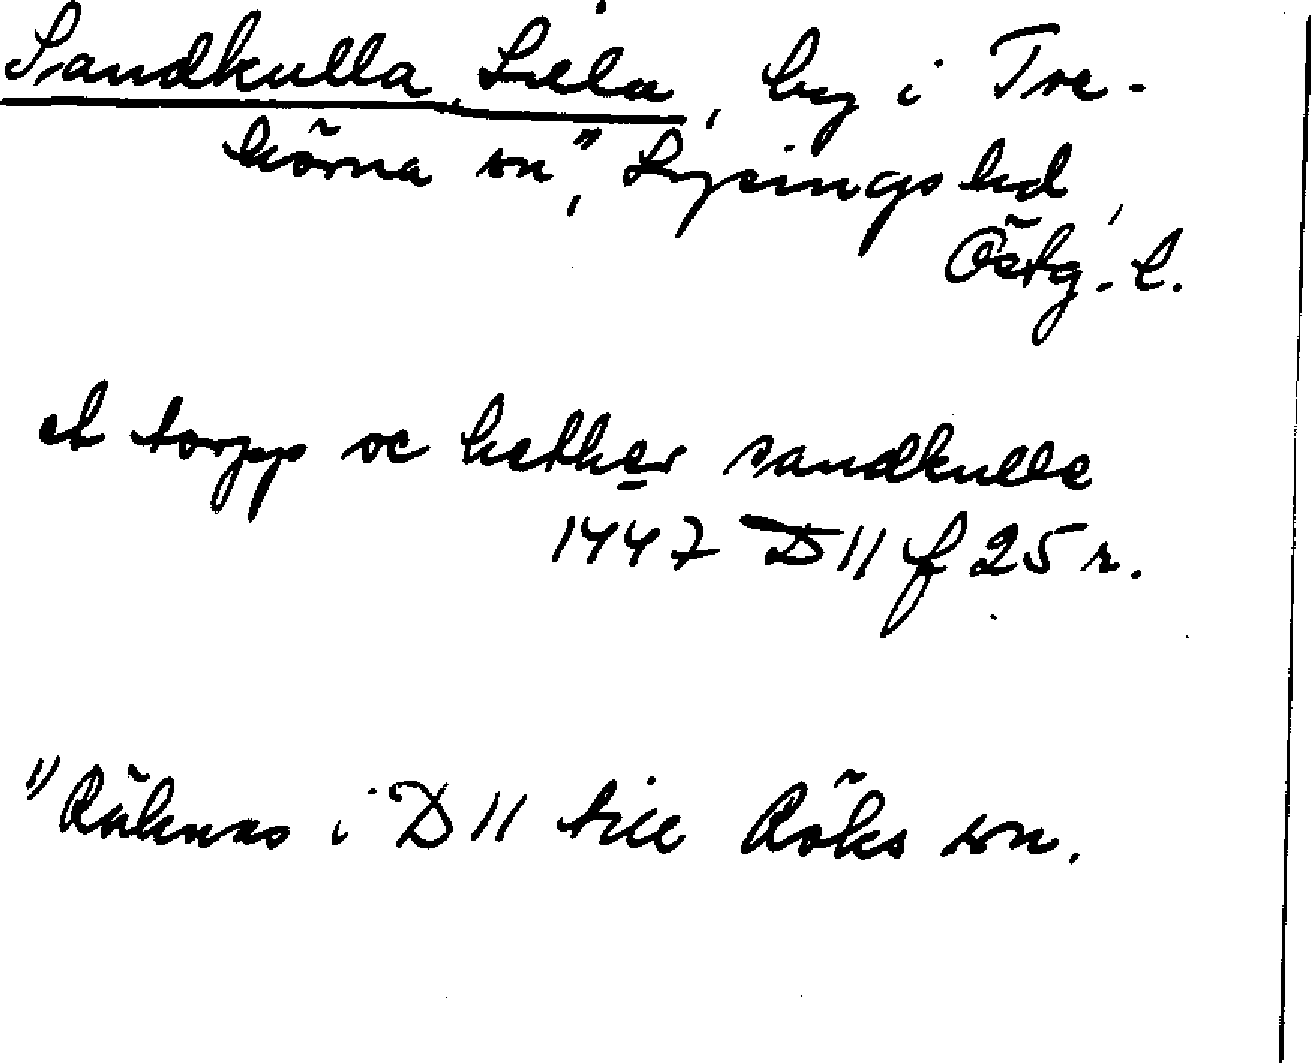 Sandkulla, Lilla, by i Tre-
hörna sn", Lysings hd,
Östg. l.
et torpp oc hether sandkulle
1447 D11 f 25 r.
"Räknas i D11 till Röks sn.